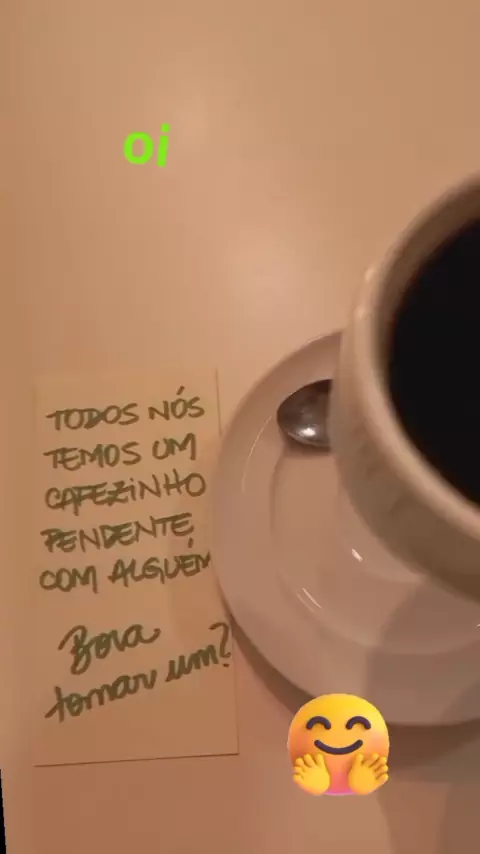 oi
TODOS NÓS
TEMOS UM
CAFEZINHO
PENDENTE
COM ALGUÉM
Bora
tomar um?